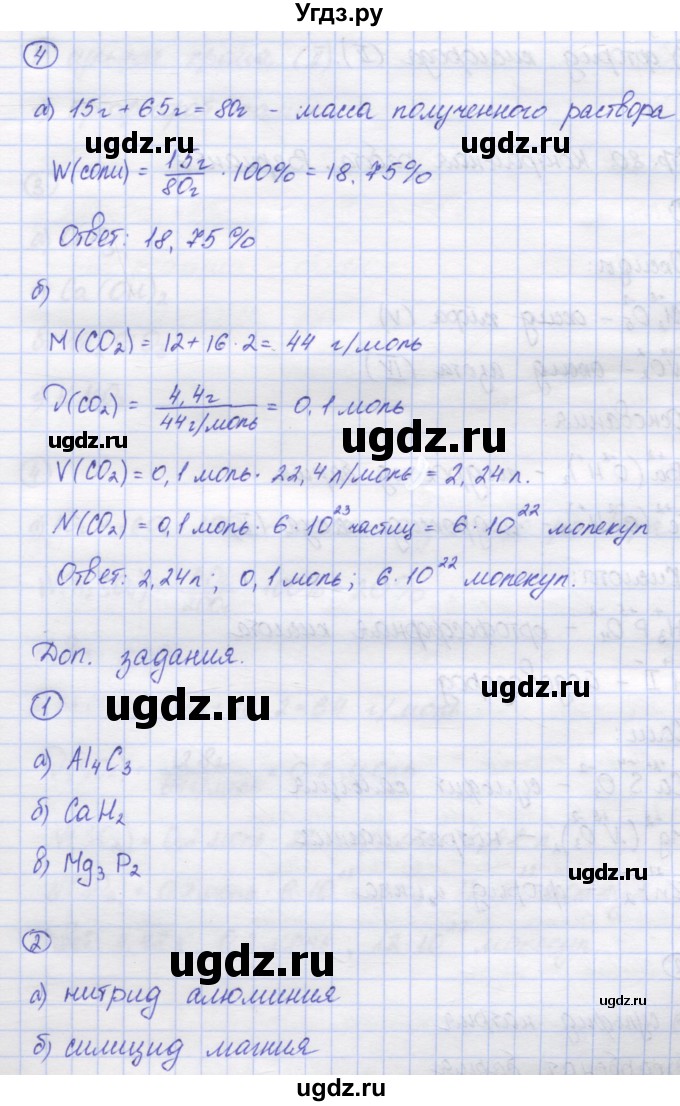 Угдз.ру
4
а) 15г + 65г = 80г - масса полученного раствора
ugdz.ru ugdz.ru
W(соли) = 15г/80г · 100% = 18.75%
Ответ: 18,75%
б)
M(CO₂) = 12 + 16 · 2 = 44 г/моль
ν(CO₂) = 4,4г/44г/моль = 0,1 моль
ugdz.ru
V(CO₂) = 0,1 моль · 22,4 л/моль = 2,24 л.
N(CO₂) = 0,1 моль · 6 · 10²³ частиц = 6 · 10²² молекул
Ответ: 2,24 л; 0,1 моль; 6 · 10²² молекул.
Доп. задания.
ugdz.ru ugdz.ru
1
а) Al₄C₃
б) CaH₂
в) Mg₃P₂
ugdz.ru
2
ugdz.ru
а) нитрид алюминия
ugdz.ru
б) силицид магния
ugdz.ru